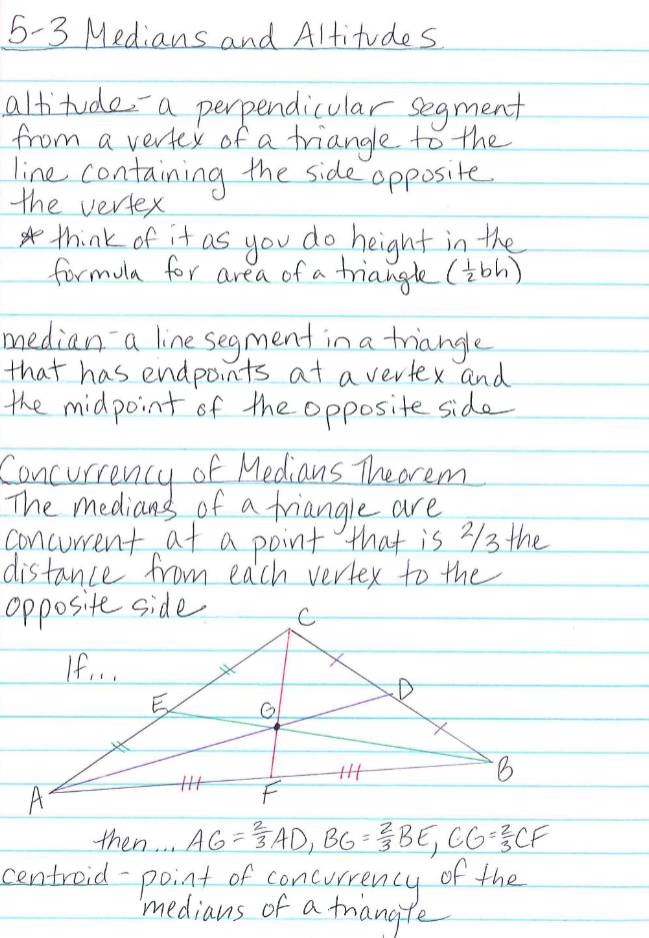 5-3 Medians and Altitudes
altitude - a perpendicular segment
from a vertex of a triangle to the
line containing the side opposite
the vertex
* think of it as you do height in the
formula for area of a triangle (½bh)
median - a line segment in a triangle
that has endpoints at a vertex and
the midpoint of the opposite side
Concurrency of Medians Theorem
The medians of a triangle are
concurrent at a point that is 2/3 the
distance from each vertex to the
opposite side
C
If...
D
E
G
B
A
F
then... AG = 2/3 AD, BG = 2/3 BE, CG = 2/3 CF
centroid - point of concurrency of the
medians of a triangle